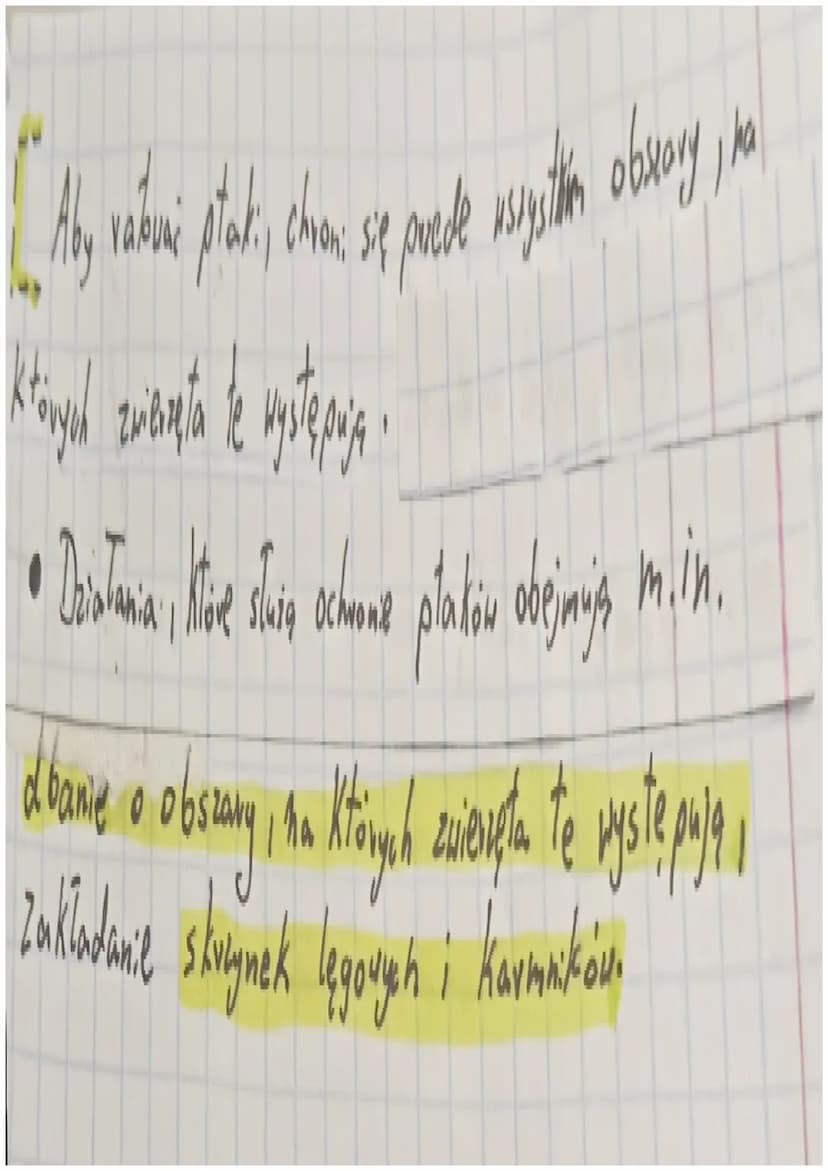 Aby ratować ptaki, chroni się przede wszystkim obszary, na
których zwierzęta te występują.
• Działania, które służą ochronie ptaków obejmują m.in.
dbanie o obszary, na których zwierzęta te występują,
zakładanie skrzynek lęgowych i karmników.